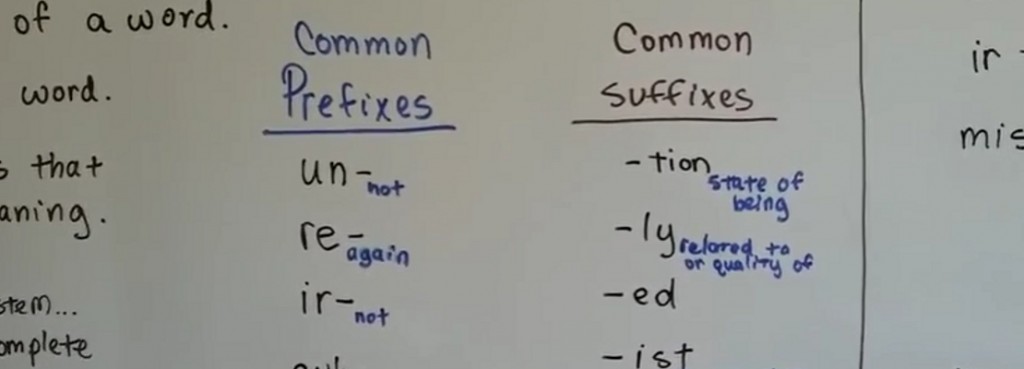 of a word.
word.
s that
aning.
stem...
omplete
Common
Prefixes
un- not
re- again
ir- not
Common
suffixes
-tion state of
being
-ly relared to
or quality of
-ed
-ist
ir -
mis